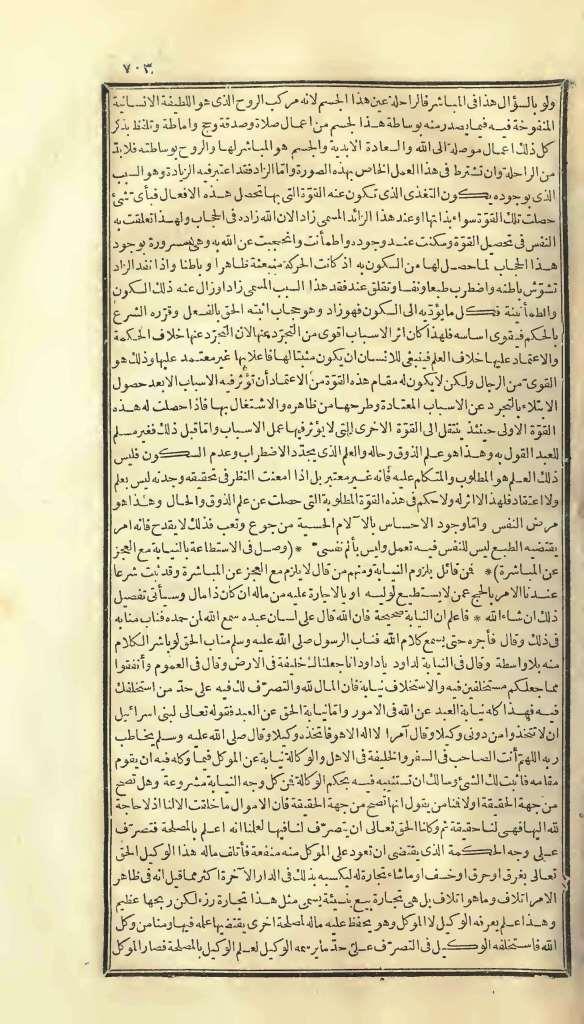 ٧٠٣
ولو بالسؤال هذا فى المباشر فالراحلة عين هذا الجسم لانه مركب الروح الذى هو اللطيفة الانسانية
المنفوخة فيه فيما يصدر منه بوساطة هذا الجسم من اعمال صلاة وصدقة وحج واماطة وتلفظ بذكر
كل ذلك اعمال موصلة الى الله والسعادة الابدية والجسم هو المباشر لها والروح بوساطته فلا بد
من الراحلة وان تشترط فى هذا العمل الخاص بهذه الصورة واما الزاد فقد اعتبر فيه الزيادة وهو السبب
الذى بوجوده يكون التغذى الذى تكون عنه القوة التى بها تحصل هذه الافعال فبأى شئ
حصلت تلك القوة سواء بذاتها او عند هذا الزائد المسمى زادا لان الله زاده فى الحجاب ولهذا تعلقت به
النفس فى تحصيل القوة وسكنت عند وجوده واطمأنت وانحجبت عن الله به وهى مسرورة بوجود
هذا الحجاب لما حصل لها من السكون به اذ كانت الحركة متعبة ظاهرا وباطنا واذا فقد الزاد
تشوش باطنه واضطرب طبعا ونفسا وتعلق عند فقد هذا السبب المسمى زادا وزال عنه ذلك السكون
والطمأنينة فكل ما يؤديه الى السكون فهو زاد وهو حجاب اثبته الحق بالفعل وقرره الشرع
بالحكم فيقوى اساسه فلهذا كان اثر الاسباب اقوى من التجرد عنها لان التجرد عنها خلاف الحكمة
والاعتماد عليها خلاف العلم فينبغى للانسان ان يكون مثبتا لها فاعلا بها غير معتمد عليها وذلك هو
القوى من الرجال ولكن لا يكون له مقام هذه القوة من الاعتماد أن تؤثر فيه الاسباب الا بعد حصول
الابتلاء بالتجرد عن الاسباب المعتادة وطرحها من ظاهره والاشتغال بها فاذا حصلت له هذه
القوة الاولى حينئذ ينتقل الى القوة الاخرى التى لا يؤثر فيها عمل الاسباب واما قبل ذلك فغير مسلم
للعبد القول به وهذا هو علم الذوق وحاله والعلم الذى يجدد الاضطراب وعدم السكون فليس
ذلك العلم هو المطلوب والمتكلم عليه فانه غير معتبر بل اذا امعنت النظر فى تحقيقه وجدته ليس بعلم
ولا اعتقاد فلهذا لا اثر له ولا حكم فى هذه القوة المطلوبة التى حصلت عن علم الذوق والحال وهذا هو
مرض النفس واما وجود الاحساس بالآلام الحسية من جوع وتعب فذلك لا يقدح فانه امر
يقتضيه الطبع ليس للنفس فيه تعمل وليس بألم نفسى * (وصل فى الاستطاعة بالنيابة مع العجز
عن المباشرة)* فمن قائل بلزوم النيابة ومنهم من قال لا يلزم مع العجز عن المباشرة وقد ثبت شرعا
عندنا الامر بالحج عمن لا يستطيع لوليه او بالاجارة عليه من ماله ان كان ذا مال وسيأتى تفصيل
ذلك ان شاء الله * فاعلم ان النيابة صحيحة فان الله قال على لسان عبده سمع الله لمن حمده فناب منابه
فى ذلك وقال فأجره حتى يسمع كلام الله فناب الرسول صلى الله عليه وسلم مناب الحق لو باشر الكلام
منه بلا واسطة وقال فى النيابة لداود يا داود انا جعلناك خليفة فى الارض وقال فى العموم وأنفقوا
مما جعلكم مستخلفين فيه والاستخلاف نيابة فان المال لله والتصرف لك فيه على حد من استخلفك
فيه فهذا كله نيابة العبد عن الله فى الامور واما نيابة الحق عن العبد فقوله تعالى لبنى اسرائيل
ان لا تتخذوا من دونى وكيلا وقال آمرا لا اله الا هو فاتخذه وكيلا وقال صلى الله عليه وسلم يخاطب
ربه اللهم أنت الصاحب فى السفر والخليفة فى الاهل والوكالة نيابة عن الموكل فيما وكله فيه ان يقوم
مقامه فاثبت لك الشئ وسالك ان تستنيبه فيه بحكم الوكالة فمن كل وجه النيابة مشروعة وهل تصح
من جهة الحقيقة او لا فمنا من يقول انها تصح من جهة الحقيقة فان الاموال ما خلقت الا لنا اذ لا حاجة
لله اليها فهى لنا حقيقة ثم وكلنا الحق تعالى ان يتصرف لنا فيها لعلمنا انه اعلم بالمصلحة فتصرف
على وجه الحكمة الذى يقتضى ان تعود على الموكل منه منفعة فأتلف ماله هذا الوكيل الحق
تعالى بغرق او حرق او خسف او ما شاء تجارة له ليكسبه بذلك فى الدار الآخرة اكثر مما قيل انه فى ظاهر
الامر اتلاف وما هو اتلاف بل هى تجارة بيع بنسيئة يسمى مثل هذا تجارة رزء لكن ربحها عظيم
وهذا علم يعرفه الوكيل لا الموكل وهو يحفظ عليه ماله لمصلحة اخرى يقتضيها علمه فيها ومنا من وكل
الله فاستخلفه الوكيل فى التصرف على حد ما يرسمه الوكيل لعلم الوكيل بالمصلحة فصار الموكل